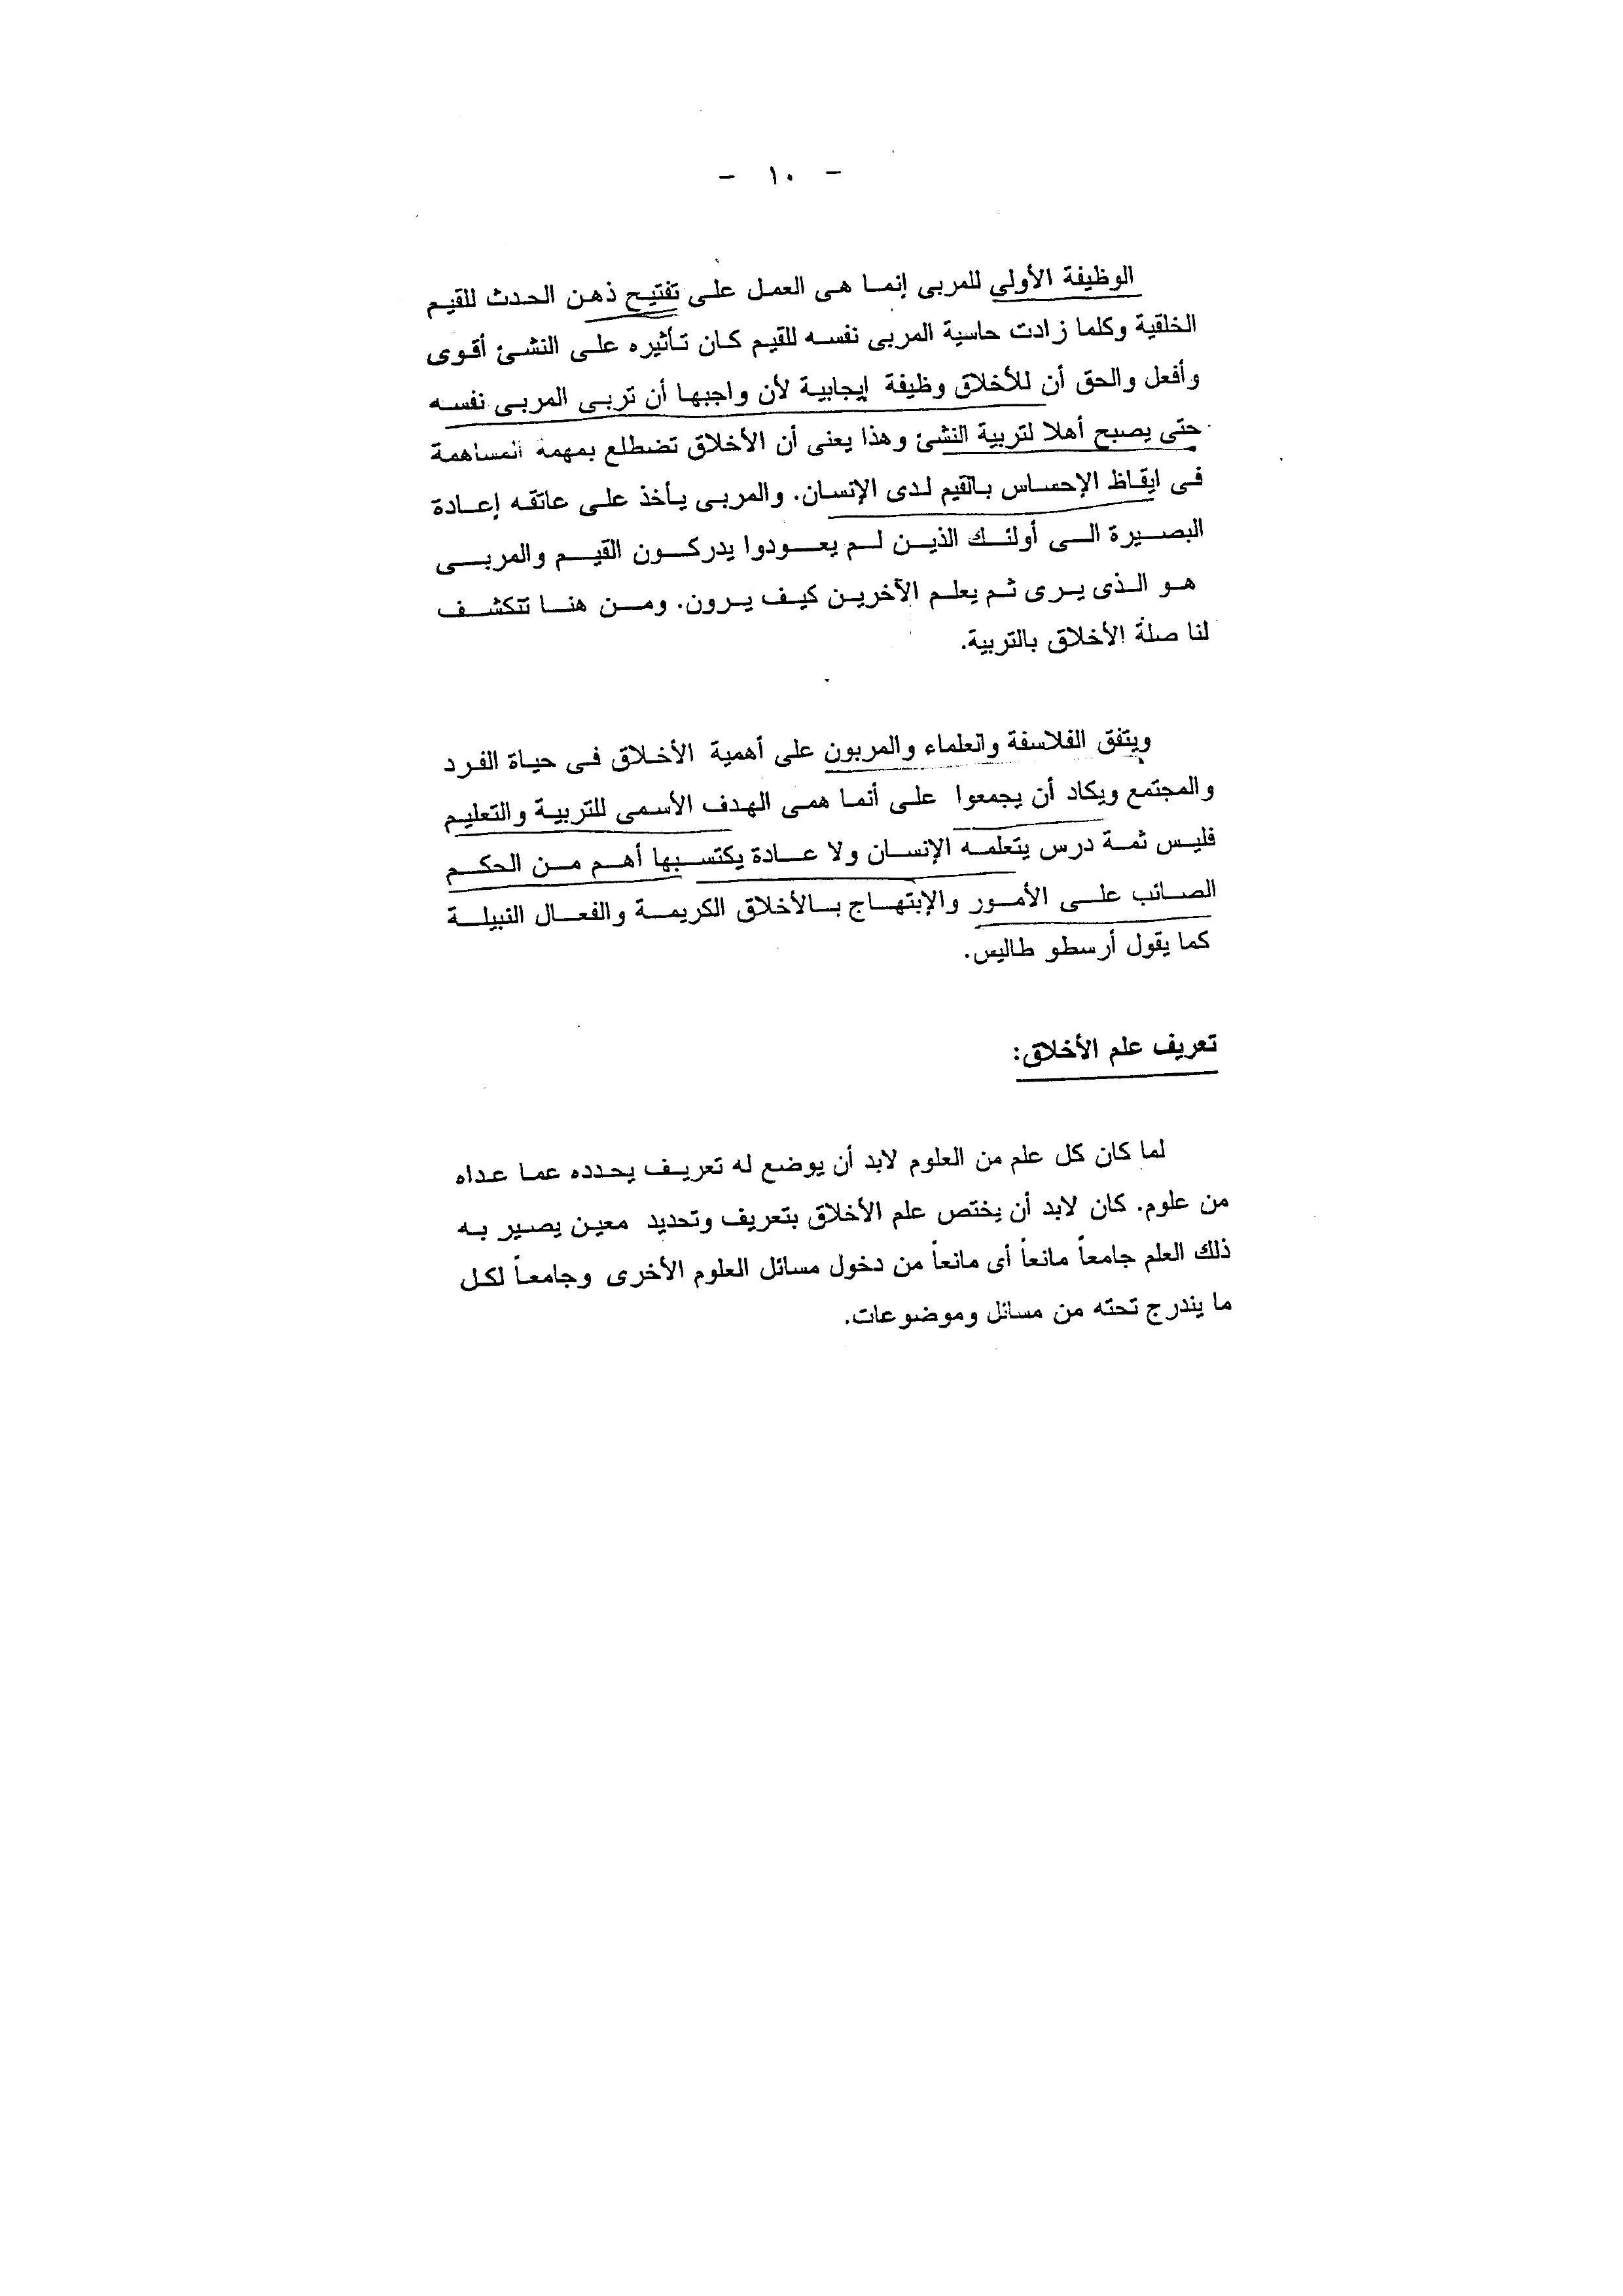 - ١٠ -
الوظيفة الأولى للمربى إنما هى العمل على تفتيح ذهن الحدث للقيم
الخلقية وكلما زادت حاسية المربى نفسه للقيم كان تأثيره على النشئ أقوى
وأفعل والحق أن للأخلاق وظيفة إيجابية لأن واجبها أن تربى المربى نفسه
حتى يصبح أهلا لتربية النشئ وهذا يعنى أن الأخلاق تضطلع بمهمة المساهمة
فى ايقاظ الإحساس بالقيم لدى الإنسان. والمربى يأخذ على عاتقه إعادة
البصيرة الى أولئك الذين لم يعودوا يدركون القيم والمربى
هو الذى يرى ثم يعلم الآخرين كيف يرون. ومن هنا تتكشف
لنا صلة الأخلاق بالتربية.
ويتفق الفلاسفة والعلماء والمربون على أهمية الأخلاق فى حياة الفرد
والمجتمع ويكاد أن يجمعوا على أنما همى الهدف الأسمى للتربية والتعليم
فليس ثمة درس يتعلمه الإنسان ولا عادة يكتسبها أهم من الحكم
الصائب على الأمور والإبتهاج بالأخلاق الكريمة والفعال النبيلة
كما يقول أرسطو طاليس.
تعريف علم الأخلاق:
لما كان كل علم من العلوم لابد أن يوضع له تعريف يحدده عما عداه
من علوم. كان لابد أن يختص علم الأخلاق بتعريف وتحديد معين يصير به
ذلك العلم جامعاً مانعاً أى مانعاً من دخول مسائل العلوم الأخرى وجامعاً لكل
ما يندرج تحته من مسائل وموضوعات.